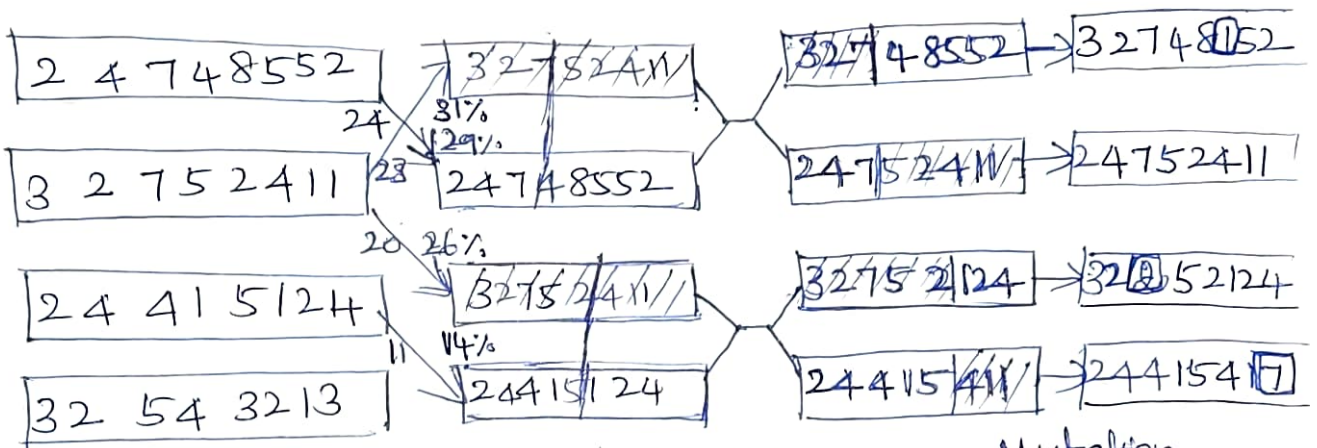 2 4 7 4 8 5 5 2
3 2 7 5 2 4 1 1
2 4 4 1 5 1 2 4
3 2 5 4 3 2 1 3
24
23
20
11
31%
29%
26%
14%
3 2 7 5 2 4 1 1
2 4 7 4 8 5 5 2
3 2 7 5 2 4 1 1
2 4 4 1 5 1 2 4
3 2 7 4 8 5 5 2
2 4 7 5 2 4 1 1
3 2 7 5 2 1 2 4
2 4 4 1 5 4 1 1
3 2 7 4 8 1 5 2
2 4 7 5 2 4 1 1
3 2 2 5 2 1 2 4
2 4 4 1 5 4 1 7
Mutation